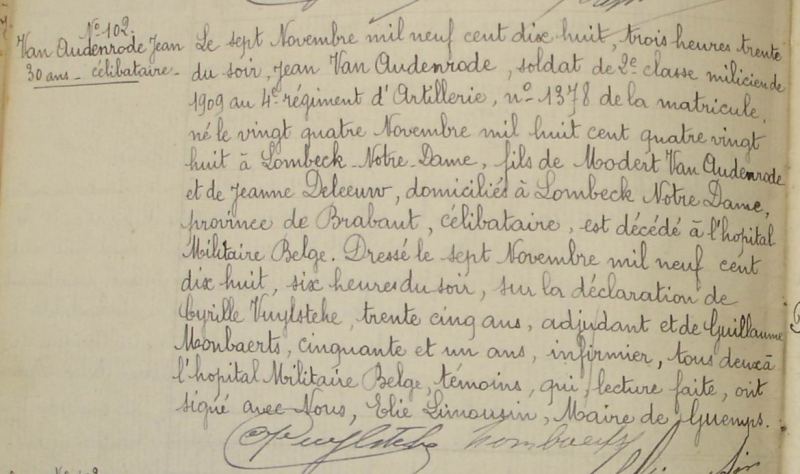 N° 102.
Van Audenrode Jean
30 ans - célibataire -
Le sept Novembre mil neuf cent dix huit, trois heures trente
du soir, Jean Van Audenrode, soldat de 2e classe milicien de
1909 au 4e régiment d'Artillerie, n° 1378 de la matricule,
né le vingt quatre Novembre mil huit cent quatre vingt
huit à Lombeck-Notre-Dame, fils de Modert Van Audenrode
et de Jeanne Deleeuw, domiciliés à Lombeck Notre Dame,
province de Brabant, célibataire, est décédé à l'hopital
Militaire Belge. Dressé le sept Novembre mil neuf cent
dix huit, six heures du soir, sur la déclaration de
Cyrille Vuylsteke, trente cinq ans, adjudant et de Guillaume
Monbaerts, cinquante et un ans, infirmier, tous deux à
l'hopital Militaire Belge, témoins, qui, lecture faite, ont
signé avec Nous, Elie Limousin, Maire de Guemps.
CVuylsteke